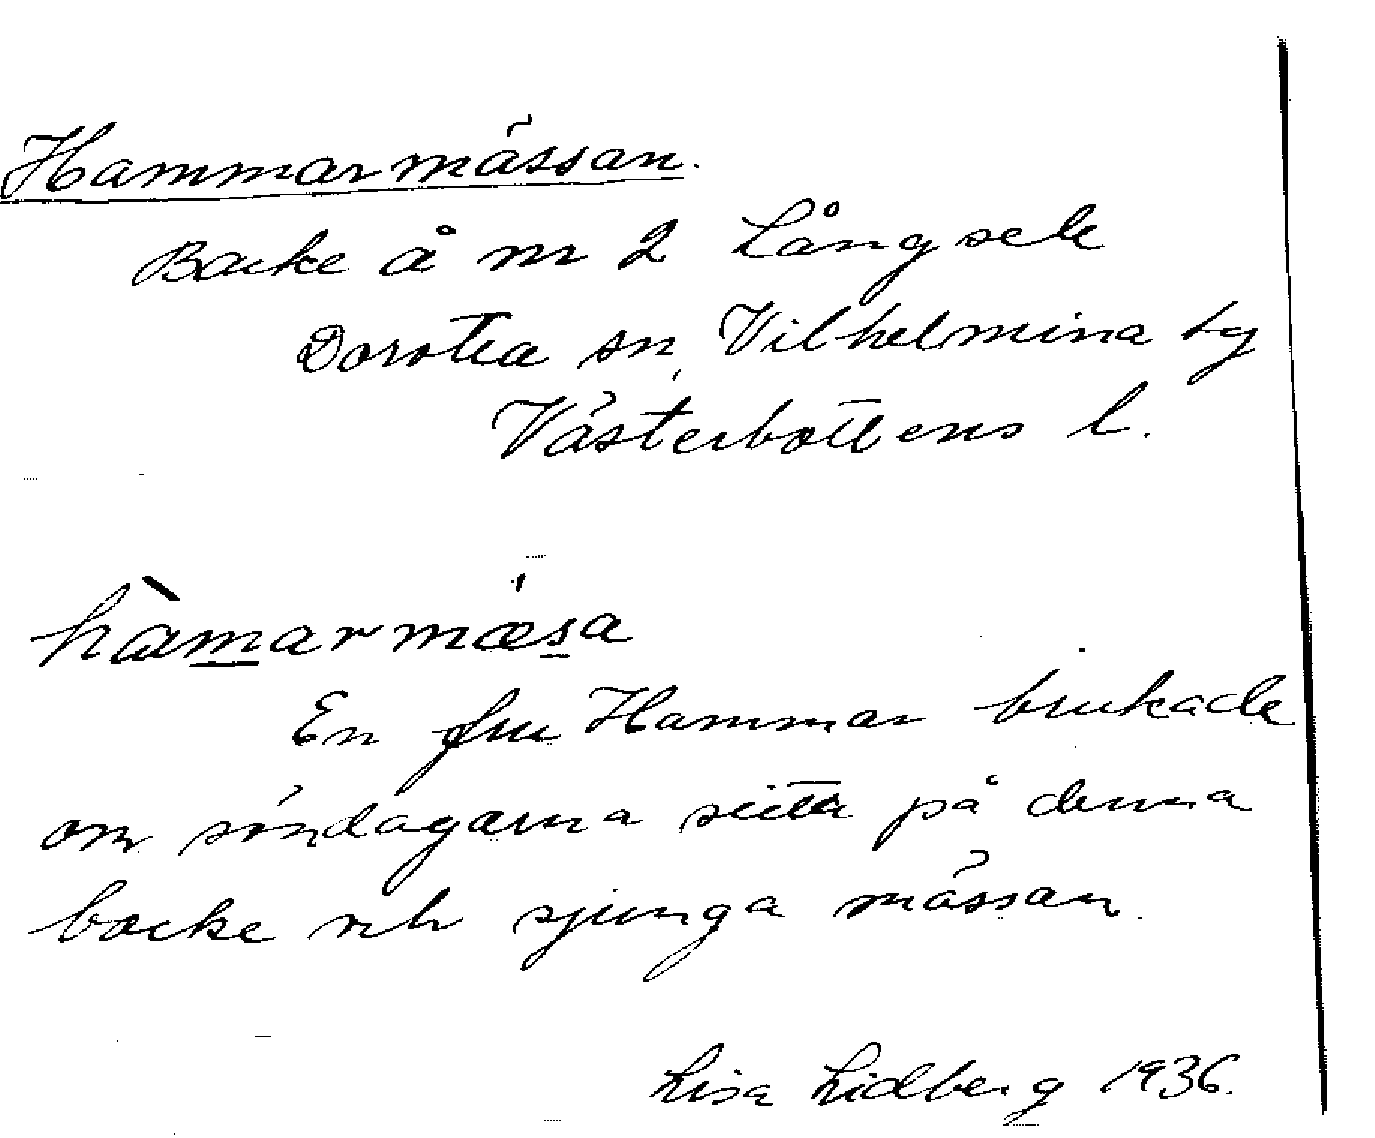 Hammarmässan.
Backe å m 2 Långsele
Dorotea sn, Vilhelmina tg
Västerbottens l.
hàmarmæ̀sa
En fru Hammar brukade
om söndagarna sitta på denna
backe och sjunga mässan.
Lisa Lidberg 1936.